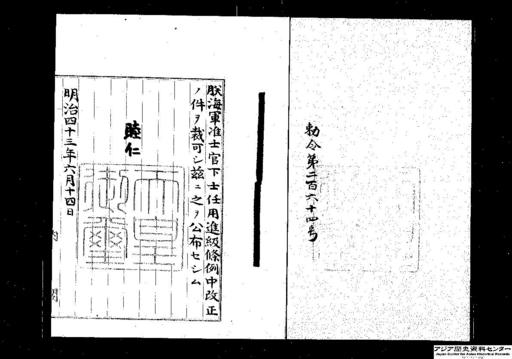 勅令第二百六十四号
朕海軍准士官下士任用進級條例中改正
ノ件ヲ裁可シ茲ニ之ヲ公布セシム
睦仁
天皇御璽
明治四十三年六月十四日
内閣
アジア歴史資料センター
Japan Center for Asian Historical Records